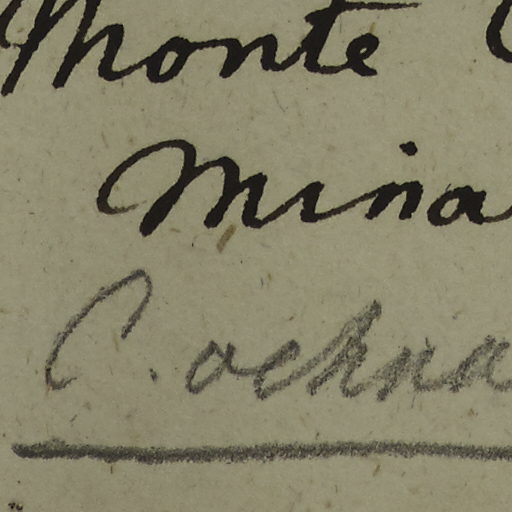 Monte
Mina
C. ochna